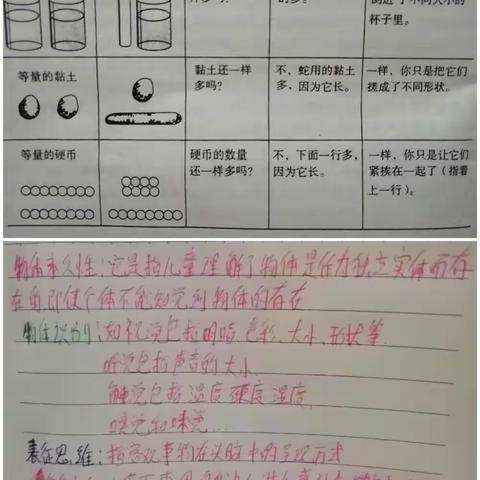 的多。
倒进了不同大小的
杯子里。
等量的黏土
黏土还一样
多吗?
不,蛇用的黏土
多,因为它长。
一样,你只是把它们
搓成了不同形状。
等量的硬币
硬币的数量
还一样多吗?
不,下面一行多,
因为它长。
一样,你只是让它们
紧挨在一起了(指着
上一行)。
物体永久性:它是指儿童理解了物体是作为独立实体而存
在的,即使个体不能知觉到物体的存在
物体识别:如视觉包括明暗、色彩、大小、形状等
听觉包括声音的大小
触觉包括温度硬度湿度
嗅觉和味觉...
表征思维:指客观事物在头脑中的呈现方式